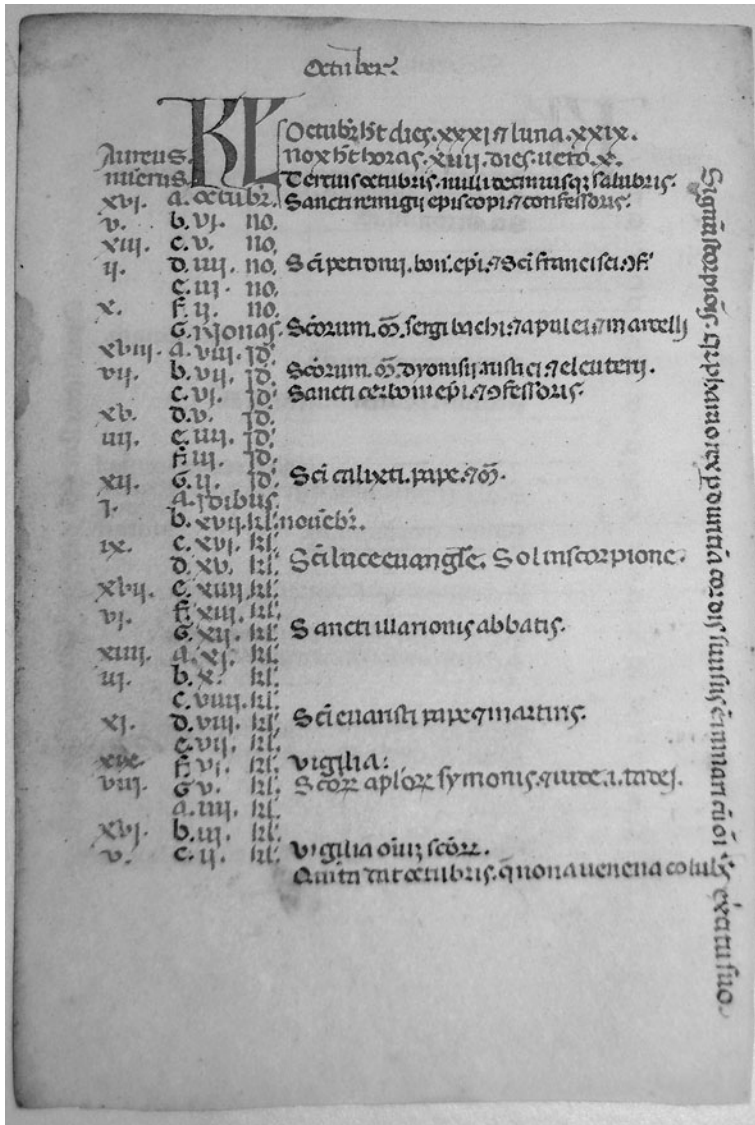 Octuber.
KL Octubr̄ h̄t dies. xxxi ⁊ luna. xxix.
Aureus. nox h̄t horas. xiiij. dies. ueꝛo. x.
nūerus Tercius octubris.
xvi. a. octubr̄. Sancti remigij episcopi ⁊ confessoris.
v. b. vi. no.
xiii. c. v. no.
ij. d. iiij. no. Sc̄i petronij. bon̄. ep̄i. ⁊ Sc̄i francisci. ꝯf̄.
e. iij. no.
x. f. ij. no.
G. Nonas. Sc̄orum. m̄. sergi bachi. ⁊ apulei ⁊ martelli
xviii. a. viii. id̄.
vij. b. vij. id̄. Sc̄orum. m̄. dyonisii. rusticj. ⁊ eleuterij.
c. vi. id̄. Sancti cerbonii ep̄i. ⁊ ꝯfessoris.
xv. d. v. id̄.
iiij. e. iiij. id̄.
f. iij. id̄.
xij. G. ij. id̄. Sc̄i calixti. pape. ⁊ m̄.
j. a. idibus.
b. xvij. kl. nouēbr̄.
ix. c. xvi. kl.
d. xv. kl. Sc̄i luce euangl̄e. Sol in scorpione.
xvij. e. xiiij. kl.
vj. f. xiii. kl.
G. xij. kl. Sancti illarionis abbatis.
xiiij. a. xj. kl.
iij. b. x. kl.
c. viiij. kl.
xj. d. viij. kl. Sc̄i euaristi pape ⁊ martiris.
e. vij. kl.
xix. f. vj. kl. vigilia:
viij. G. v. kl. Scoꝝ ap̄loꝝ symonis. ⁊ iude. i. tadej.
a. iiij. kl.
xvj. b. iij. kl.
v. c. ij. kl. vigilia oīuꝫ sc̄oꝝ.
octubris. uenena
Signū scorpiōis. pharao rex cordis